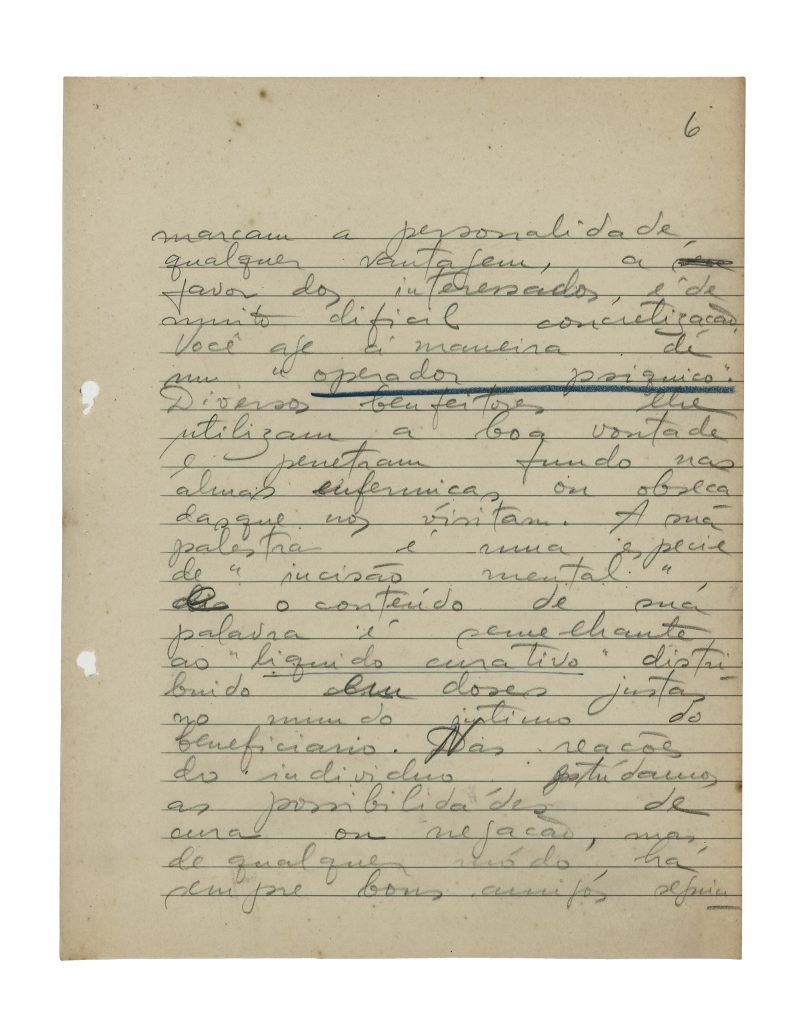 6
marcam a personalidade,
qualquer vantagem, a
favor dos interessados, é de
muito dificil concretização.
Você age á maneira de
um "operador psiquico".
Diversos benfeitores lhe
utilizam a boa vontade
e penetram fundo nas
almas enfermiças ou obseca
das que nos visitam. A sua
palestra é uma especie
de "incisão mental",
o conteúdo de sua
palavra é semelhante
ao "liquido curativo" distri
buido em doses justas
no mundo intimo do
beneficiario. Nas reações
do individuo estudamos
as possibilidades de
cura ou negação, mas,
de qualquer módo, há
sempre bons amigos seguin